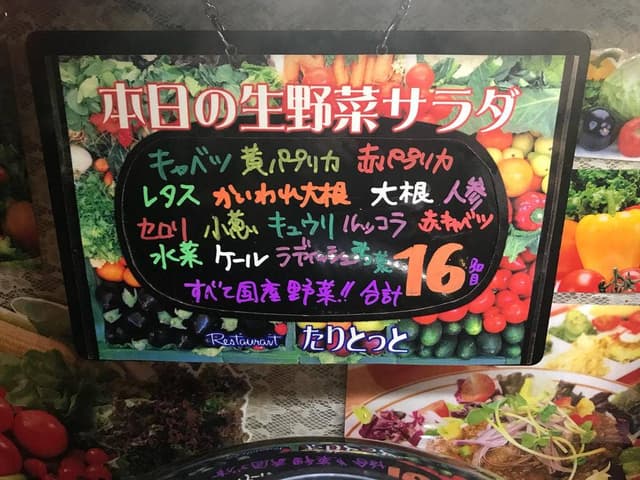 本日の生野菜サラダ
キャベツ 黄パプリカ 赤パプリカ
レタス かいわれ大根 大根 人参
セロリ 小葱 キュウリ ルッコラ 赤キャベツ
水菜 ケール ラディッシュ 16品目
すべて国産野菜!! 合計
Restaurant たりとっと